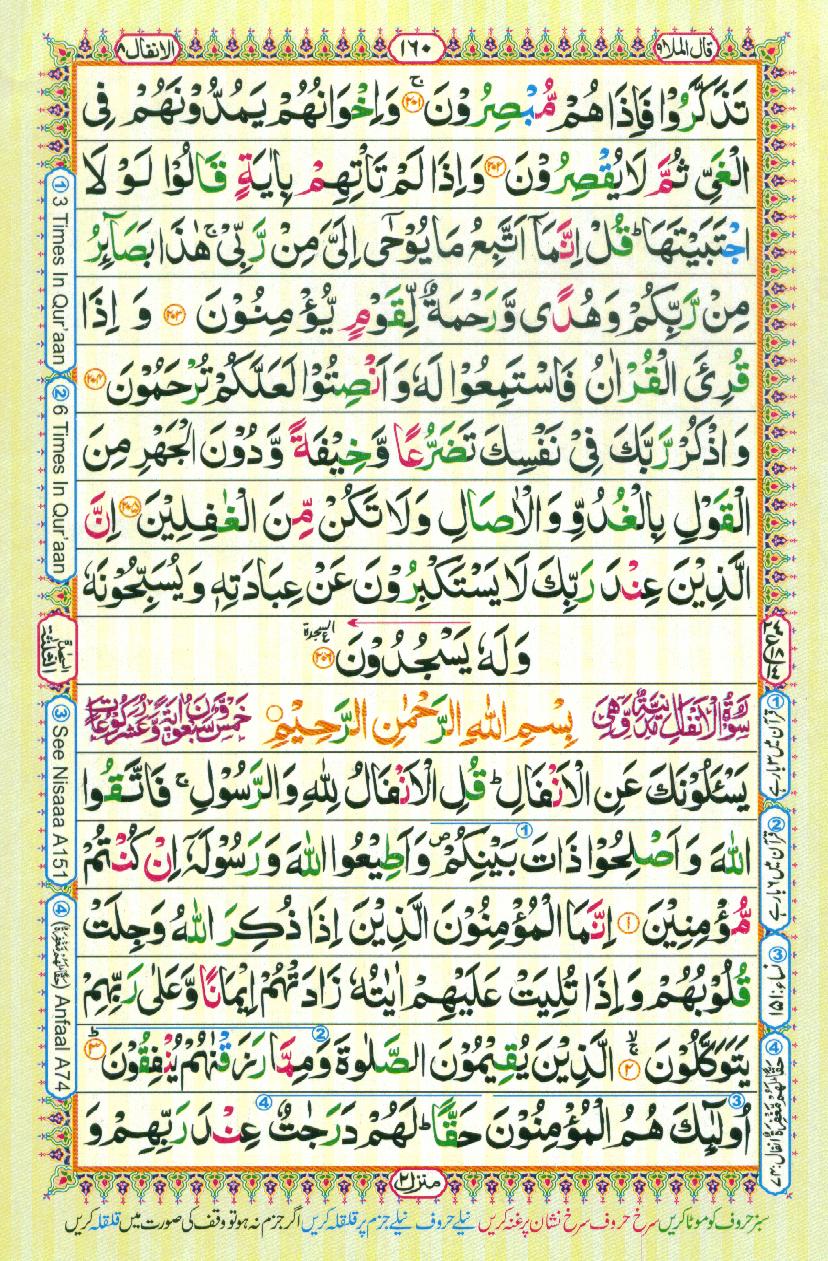 قال الملا۹
۱۶۰
الانفال۸
تَذَكَّرُوۡا فَاِذَا هُمۡ مُّبۡصِرُوۡنَ ۚ‏ ﴿۲۰۱﴾ وَاِخۡوَانُهُمۡ يَمُدُّوۡنَهُمۡ فِى
الۡغَىِّ ثُمَّ لَا يُقۡصِرُوۡنَ ﴿۲۰۲﴾ وَاِذَا لَمۡ تَاۡتِهِمۡ بِاٰيَةٍ قَالُوۡا لَوۡ لَا
اجۡتَبَيۡتَهَا‌ ؕ قُلۡ اِنَّمَاۤ اَتَّبِعُ مَا يُوۡحٰٓى اِلَىَّ مِنۡ رَّبِّىۡ ۚ هٰذَا بَصَآٮِٕرُ
مِنۡ رَّبِّكُمۡ وَهُدًى وَّرَحۡمَةٌ لِّقَوۡمٍ يُّؤۡمِنُوۡنَ ﴿۲۰۳﴾ وَ اِذَا
قُرِئَ الۡقُرۡاٰنُ فَاسۡتَمِعُوۡا لَهٗ وَاَنۡصِتُوۡا لَعَلَّكُمۡ تُرۡحَمُوۡنَ ﴿۲۰۴﴾
وَاذۡكُرۡ رَّبَّكَ فِىۡ نَفۡسِكَ تَضَرُّعًا وَّخِيۡفَةً وَّدُوۡنَ الۡجَهۡرِ مِنَ
الۡقَوۡلِ بِالۡغُدُوِّ وَالۡاٰصَالِ وَلَا تَكُنۡ مِّنَ الۡغٰفِلِيۡنَ ﴿۲۰۵﴾ اِنَّ
الَّذِيۡنَ عِنۡدَ رَبِّكَ لَا يَسۡتَكۡبِرُوۡنَ عَنۡ عِبَادَتِهٖ وَيُسَبِّحُوۡنَهٗ
وَلَهٗ يَسۡجُدُوۡنَ ﴿۲۰۶﴾ السجدة
سُوۡرَةُ الۡاَنۡفَالِ مَدَنِيَّةٌ وَّهِىَ بِسۡمِ اللهِ الرَّحۡمٰنِ الرَّحِيۡمِ خَمۡسٌ وَّسَبۡعُوۡنَ اٰيَةً وَّعَشۡرُ رُكُوۡعَاتٍ
يَسۡـَٔلُوۡنَكَ عَنِ الۡاَنۡفَالِ‌ ؕ قُلِ الۡاَنۡفَالُ لِلّٰهِ وَالرَّسُوۡلِ‌ ۚ فَاتَّقُوا
اللهَ وَاَصۡلِحُوۡا ذَاتَ بَيۡنِكُمۡ ۖ وَاَطِيۡعُوا اللهَ وَرَسُوۡلَهٗۤ اِنۡ كُنۡتُمۡ
مُّؤۡمِنِيۡنَ ﴿۱﴾ اِنَّمَا الۡمُؤۡمِنُوۡنَ الَّذِيۡنَ اِذَا ذُكِرَ اللهُ وَجِلَتۡ
قُلُوۡبُهُمۡ وَاِذَا تُلِيَتۡ عَلَيۡهِمۡ اٰيٰتُهٗ زَادَتۡهُمۡ اِيۡمَانًا وَّعَلٰى رَبِّهِمۡ
يَتَوَكَّلُوۡنَ ﴿۲﴾ الَّذِيۡنَ يُقِيۡمُوۡنَ الصَّلٰوةَ وَمِمَّا رَزَقۡنٰهُمۡ يُنۡفِقُوۡنَ ؕ ﴿۳﴾
اُولٰٓٮِٕكَ هُمُ الۡمُؤۡمِنُوۡنَ حَقًّا‌ ؕ لَهُمۡ دَرَجٰتٌ عِنۡدَ رَبِّهِمۡ وَ
منزل۲
① 3 Times In Qur'aan
② 6 Times In Qur'aan
③ See Nisaaa A151
④ (حَقًّا لَهُمۡ مَّغۡفِرَةٌ) Anfaal A74
① قرآن میں ۳ بار ہے
② قرآن میں ۶ بار ہے
③ نساء: ۱۵۱
④ حَقًّا لَهُمۡ مَّغۡفِرَةٌ انفال: ۷۴
سبز حروف کو موٹا کریں سرخ حروف سرخ نشان پر غنہ کریں نیلے حروف نیلے جزم پر قلقلہ کریں اگر جزم نہ ہو تو وقف کی صورت میں قلقلہ کریں